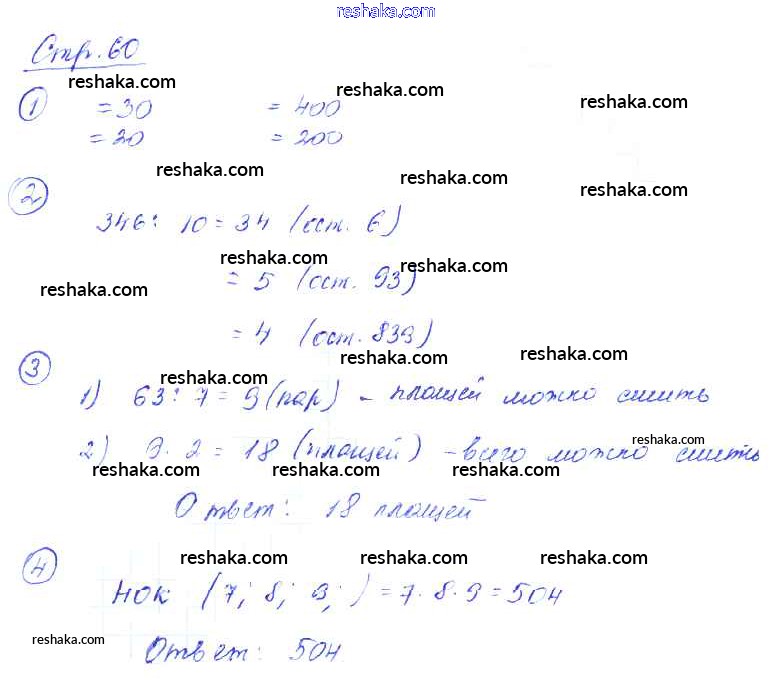 reshaka.com
Стр. 60
reshaka.com reshaka.com reshaka.com
1 = 30 = 400
= 20 = 200
reshaka.com reshaka.com reshaka.com
2
346 : 10 = 34 (ост. 6)
reshaka.com reshaka.com
= 5 (ост. 93)
reshaka.com
= 4 (ост. 839)
3
reshaka.com reshaka.com reshaka.com
1) 63 : 7 = 9 (пар) – плащей можно сшить
reshaka.com
2) 9 · 2 = 18 (плащей) – всего можно сшить
reshaka.com reshaka.com reshaka.com
Ответ: 18 плащей
4
reshaka.com reshaka.com reshaka.com
НОК (7; 8; 9;) = 7 · 8 · 9 = 504
reshaka.com
Ответ: 504